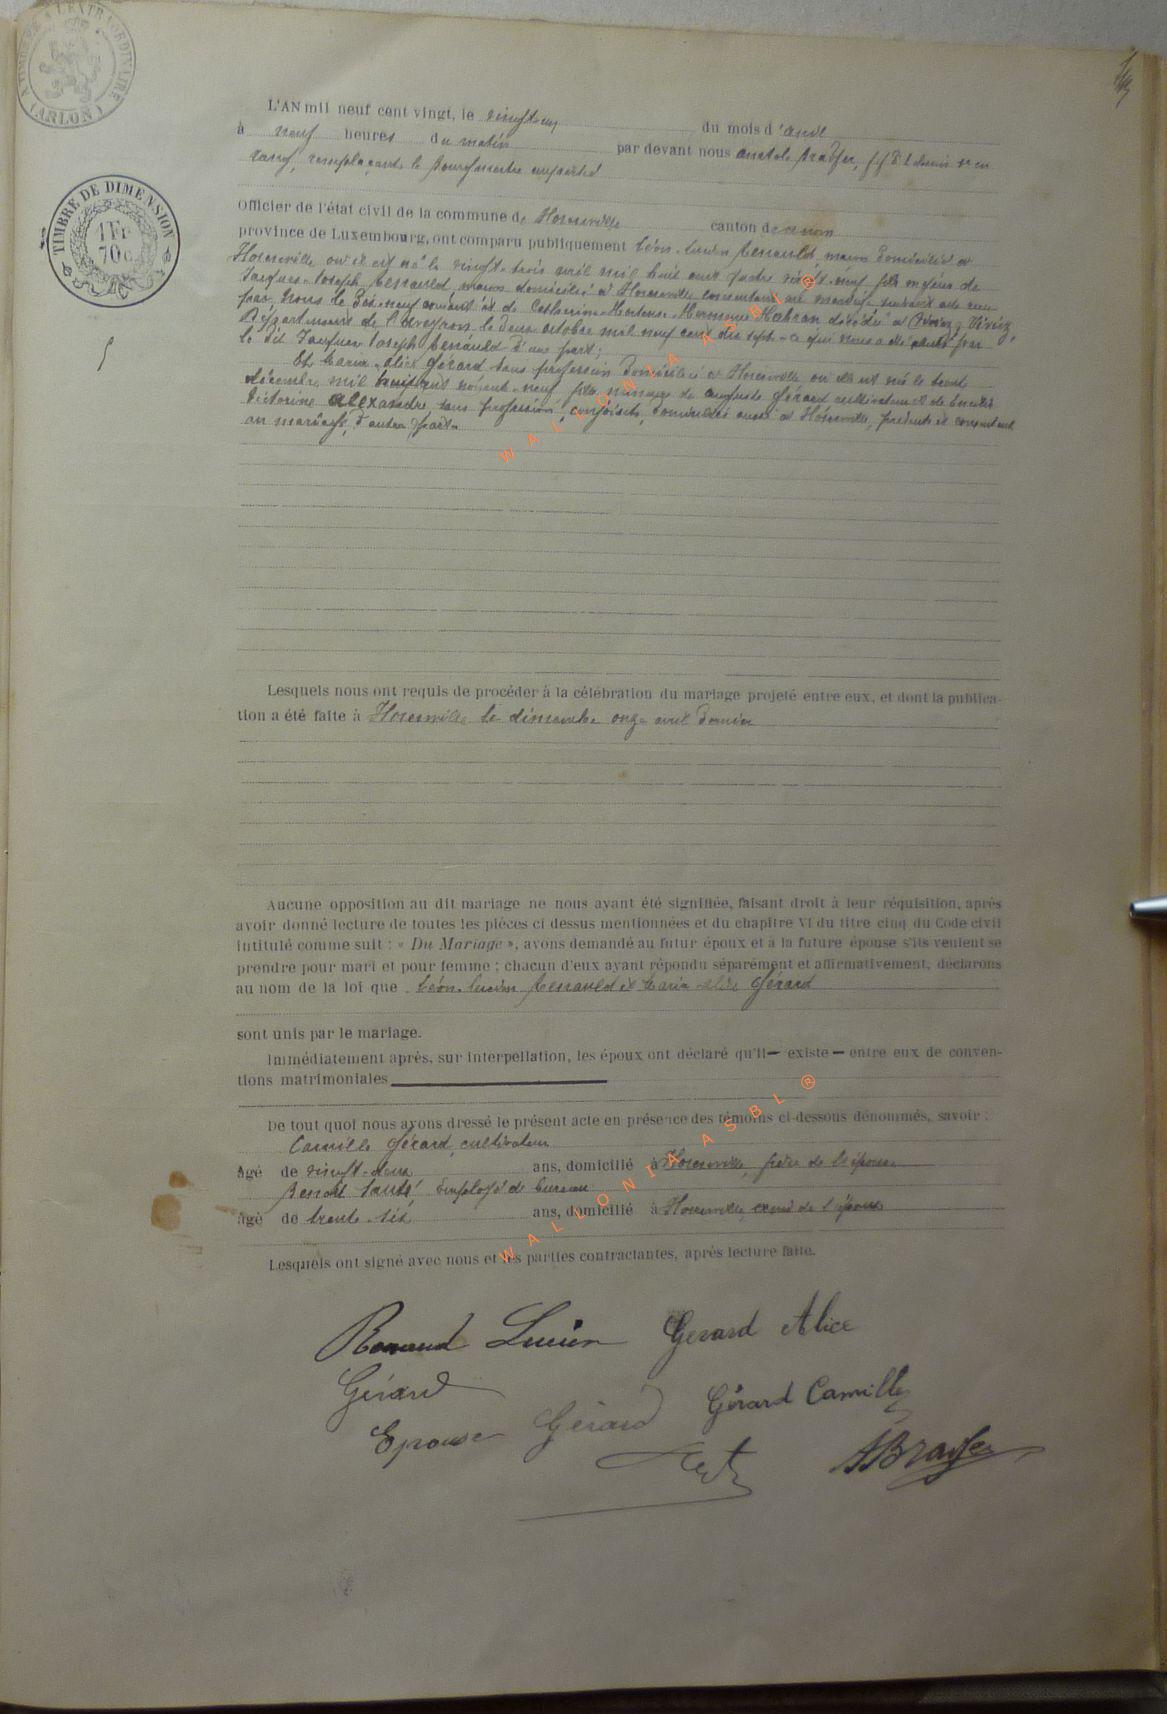 TIMBRE À L'EXTRAORDINAIRE
(ARLON)
TIMBRE DE DIMENSION
1 Fr
70 c
5
L'AN mil neuf cent vingt, le vingt-un du mois d'avril
à neuf heures du matin par devant nous Anatole Braffer, 1er en
rang, remplaçant le Bourgmestre empêché
Officier de l'état civil de la commune de canton de
province de Luxembourg, ont comparu publiquement Léon Lucien Renauld, maçon domicilié à
où il est né le vingt-trois avril mil huit cent quatre vingt-neuf, fils majeur de
Jacques-Joseph Renauld maçon domicilié à consentant au mariage suivant acte reçu
par nous le dix-neuf courant et de Catherine Hortense décédée à Viviez
Département de l'Aveyron le deux octobre mil neuf cent dix sept ce qui nous a été par
le dit Jacques Joseph Renauld d'une part;
Et Maria-Alice Gérard sans profession domiciliée à où elle est née le trente
décembre mil huit cent nonante-neuf, fille mineure de Auguste Gérard cultivateur et de
Victorine Alexandre sans profession, conjoints, domiciliés aussi à présents et consentant
au mariage, d'autre part.
Lesquels nous ont requis de procéder à la célébration du mariage projeté entre eux, et dont la publica-
tion a été faite à le dimanche onze avril dernier
Aucune opposition au dit mariage ne nous ayant été signifiée, faisant droit à leur réquisition, après
avoir donné lecture de toutes les pièces ci dessus mentionnées et du chapitre VI du titre cinq du Code civil
intitulé comme suit : « Du Mariage », avons demandé au futur époux et à la future épouse s'ils veulent se
prendre pour mari et pour femme ; chacun d'eux ayant répondu séparément et affirmativement, déclarons
au nom de la loi que Léon-Lucien Renauld et Maria Alice Gérard
sont unis par le mariage.
Immédiatement après, sur interpellation, les époux ont déclaré qu'il — existe — entre eux de conven-
tions matrimoniales
De tout quoi nous avons dressé le présent acte en présence des témoins ci-dessous dénommés, savoir :
Camille Gérard, cultivateur
âgé de vingt-deux ans, domicilié à frère de l'épouse
Benoit employé de bureau
âgé de trente-six ans, domicilié à de l'époux
Lesquels ont signé avec nous et les parties contractantes, après lecture faite.
Renauld Lucien Gerard Alice
Gérard
Epouse Gérard Gérard Camille
ABraffer
WALLONIA ASBL ®
WALLONIA ASBL ®